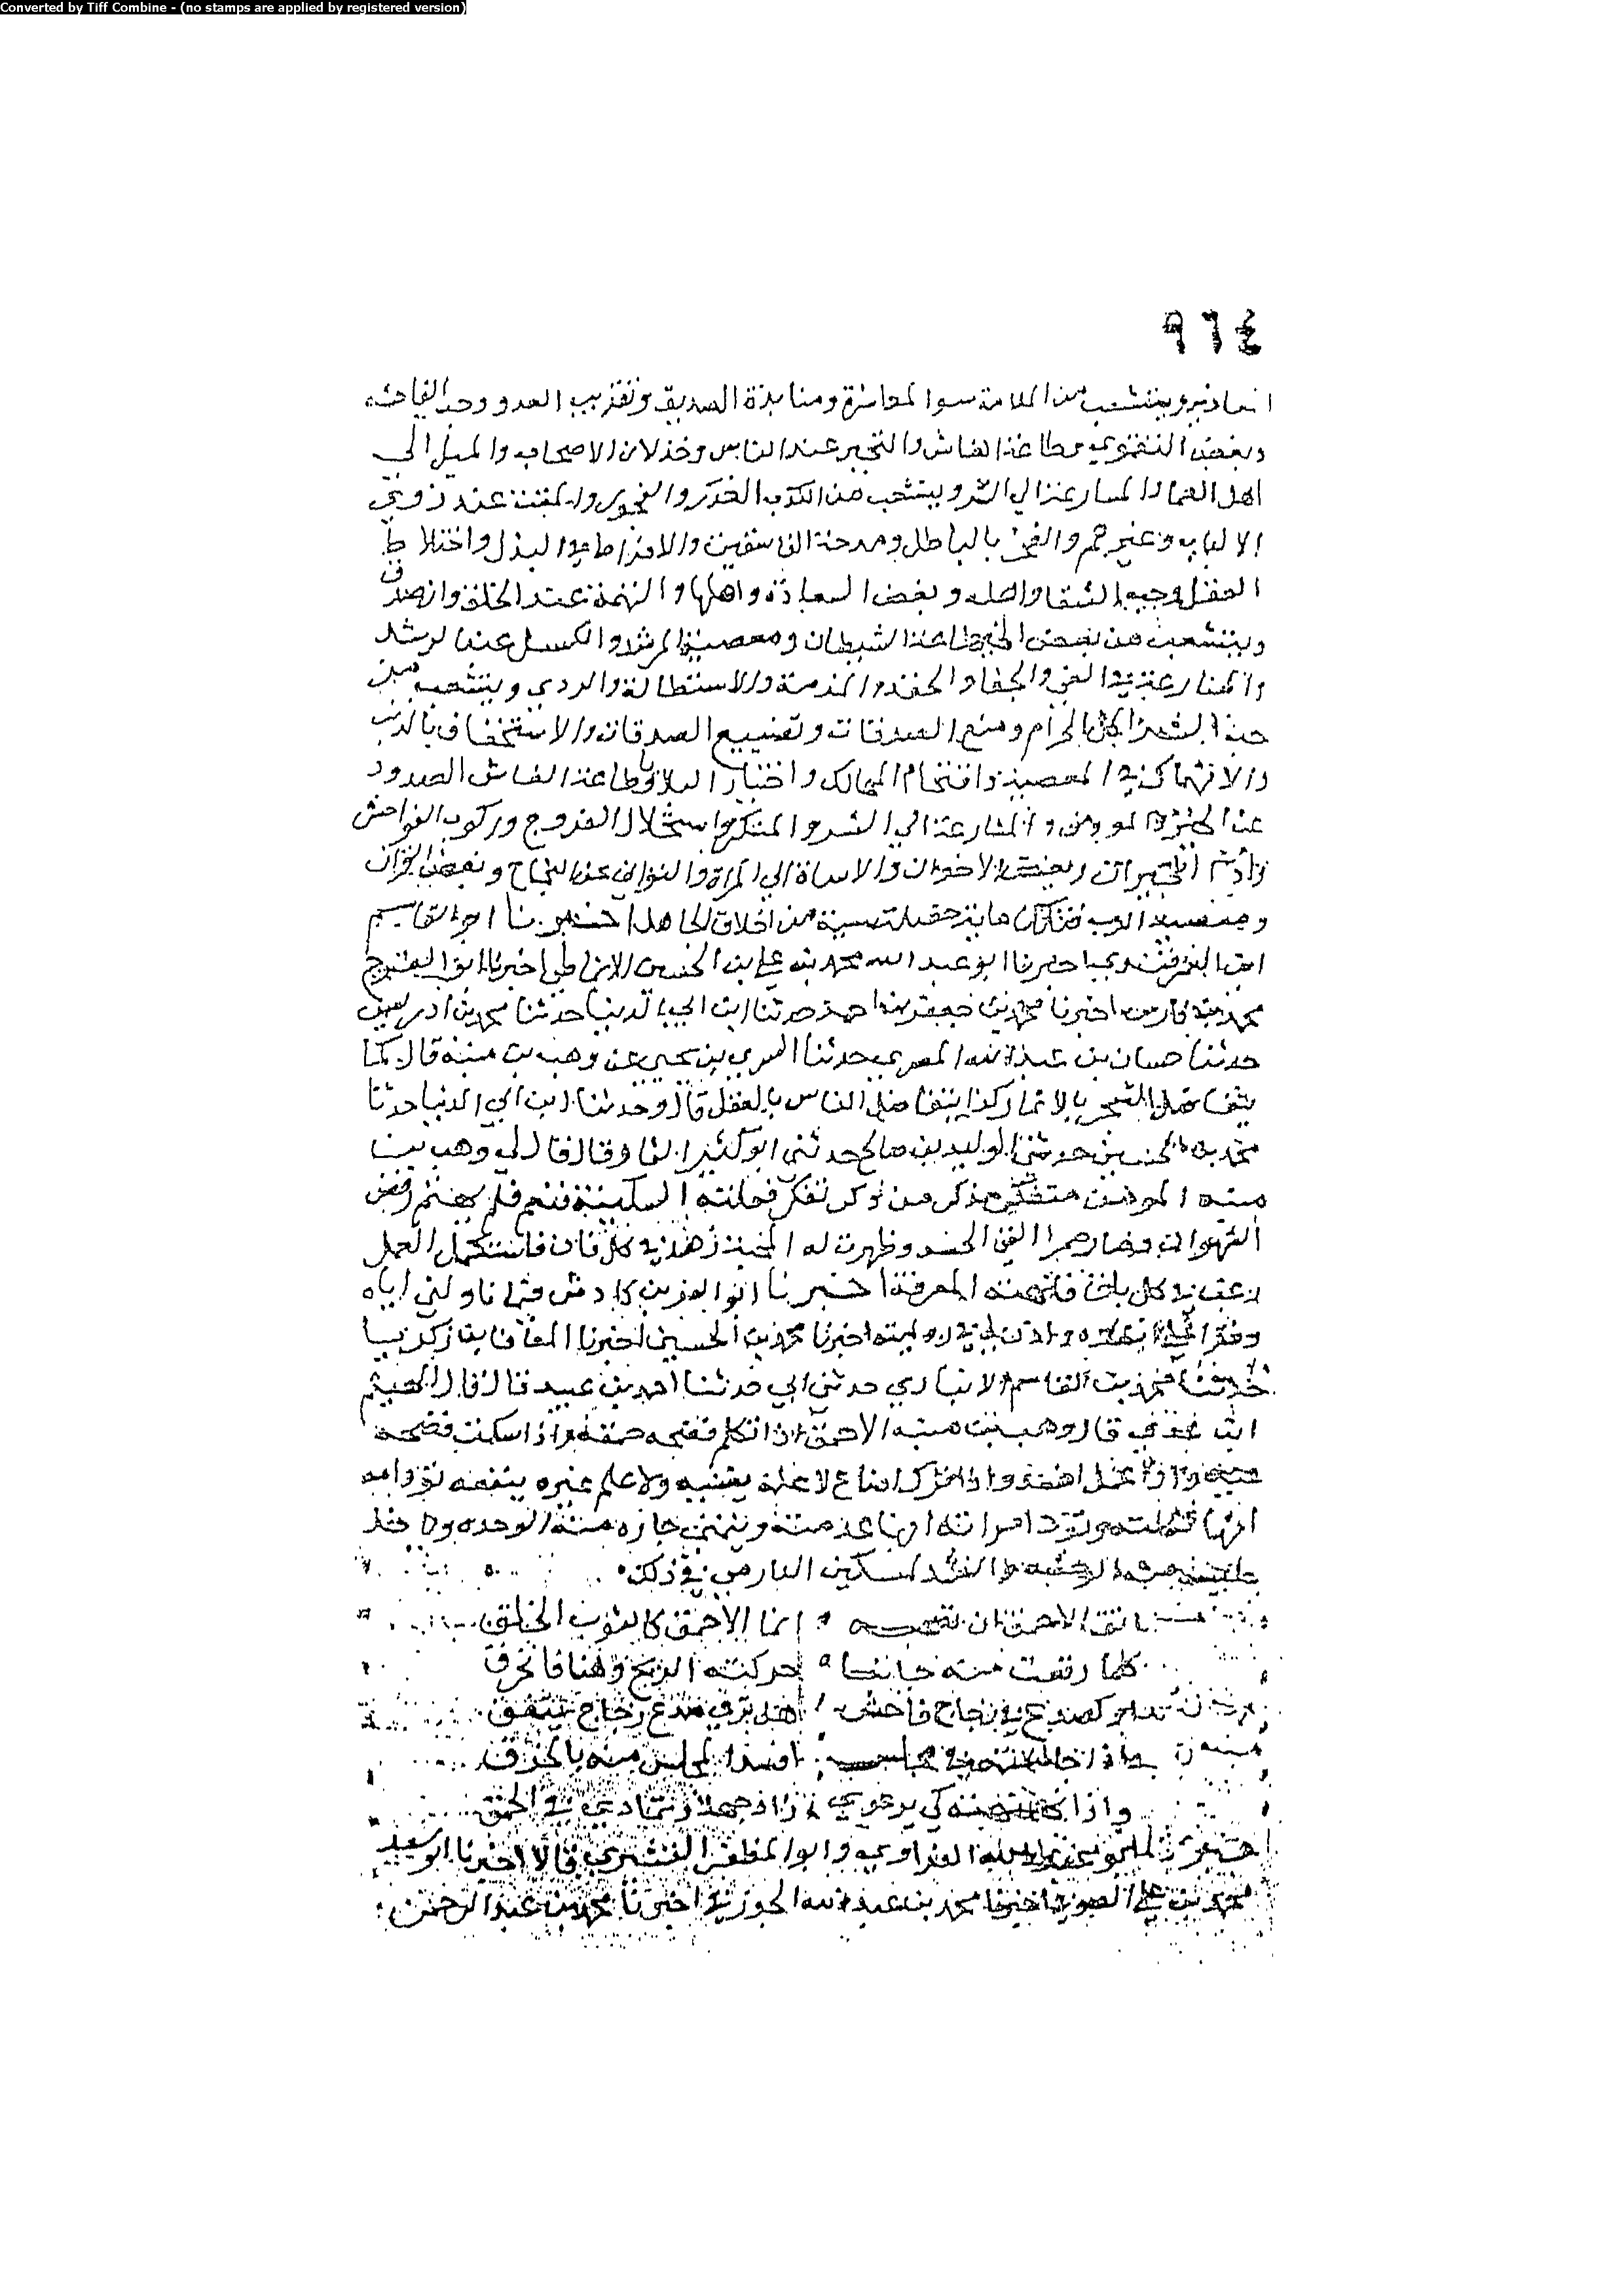 Converted by Tiff Combine - (no stamps are applied by registered version)
٩٦٤
وينشعب من الملامة سوا المعاشرة ومنابذة الصديق وتقريب العدو وحب الفاحشه
وبغض التقوى وطاعة الغاش والتجبر عند الناس وخذلان الاصحاب والميل الى
اهل العما والمسارعة الى الشر وينشعب من الكذب الغدر والفجور والمقت عند ذوي
الالباب وغيرهم والفخر بالباطل ومدحة الفاسقين والافراط في البذل واختلاط
العقل وحب الشقا واهله وبغض السعادة واهلها والتهمة عند الخلق وان صدق
وينشعب من بغض الخير طاعة الشيطان ومعصية المرشد والكسل عند الرشد
والمسارعة في الغي والجفا والحقد والمذمة والاستطالة والردى وينشعب من
الحرام ومنع الصدقات وتضييع الصدقات والاستخفاف بالذنب
والانهماك في المعصية واقتحام المهالك واختيار البلا وطاعة الغاش الصدود
عن الخير والمسارعة الى الشر والمنكر واستحلال الفروج وركوب الفواحش
الاخوان والاساة الى المراة والتواني عن النجاح وبغض القران
من اخلاق الجاهل اخبرنا ابو القاسم
ابن السمرقندي اخبرنا ابو عبد الله محمد بن علي بن الحسين الانماطي اخبرنا ابو
محمد بن فارس اخبرنا محمد بن جعفر بن احمد حدثنا ابن ابي الدنيا حدثنا محمد بن ادريس
حدثنا حسان بن عبد الله المصري حدثنا السري بن يحيى عن وهب بن منبه قال كما
يتفاضل الشجر بالاثمار كذا يتفاضل الناس بالعقل قال وحدثنا ابن ابي الدنيا حدثنا
محمد بن الحسين حدثني الوليد بن صالح حدثني ابو كثير قال قال لي وهب بن
منبه المومن متفكر مذكر من ذكر تفكر فعلته السكينة قنع فلم يهتم رفض
الشهوات فصار حرا الغى الحسد وظهرت له المحبة زهد في كل فان فاستكمل العقل
رغب في كل باق فالهمته المعرفة اخبرنا ابو العز بن كادش فيما ناولني اياه
وقرا علي اسناده واذن لي في روايته اخبرنا محمد بن الحسين اخبرنا المعافا بن زكريا
حدثنا محمد بن القاسم الانباري حدثني ابي حدثنا احمد بن عبيد قال قال الهيثم
ابن عدي قال وهب بن منبه الاحمق اذا تكلم فضحه حمقه واذا سكت فضحه
عيه واذا عمل افسد واذا ترك اضاع لا علمه يعينه ولا علم غيره ينفعه تود امه
انها ثكلته وتود امراته انها عدمته ويتمنى جاره منه الوحده وياخذ
جليسه منه الوحشه وانشد لمسكين الدارمي في ذلك
اتق الاحمق ان تصحبه ٥ انما الاحمق كالثوب الخلق
كلما رقعت منه جانبا ٥ حركته الريح وهنا فانخرق
كصدع في زجاج فاحش هل ترى صدع زجاج يتفق
واذا جالسته في مجلس افسد المجلس منه بالخرق
واذا نهنهته كي يرعوي زاد جهلا وتمادى في الحمق
اخبرنا ابو عبد الله الفراوي وابو المظفر القشيري قالا اخبرنا ابو سعيد
محمد بن علي الصوفي اخبرنا محمد بن عبد الله الجوزقي اخبرنا محمد بن عبد الرحمن